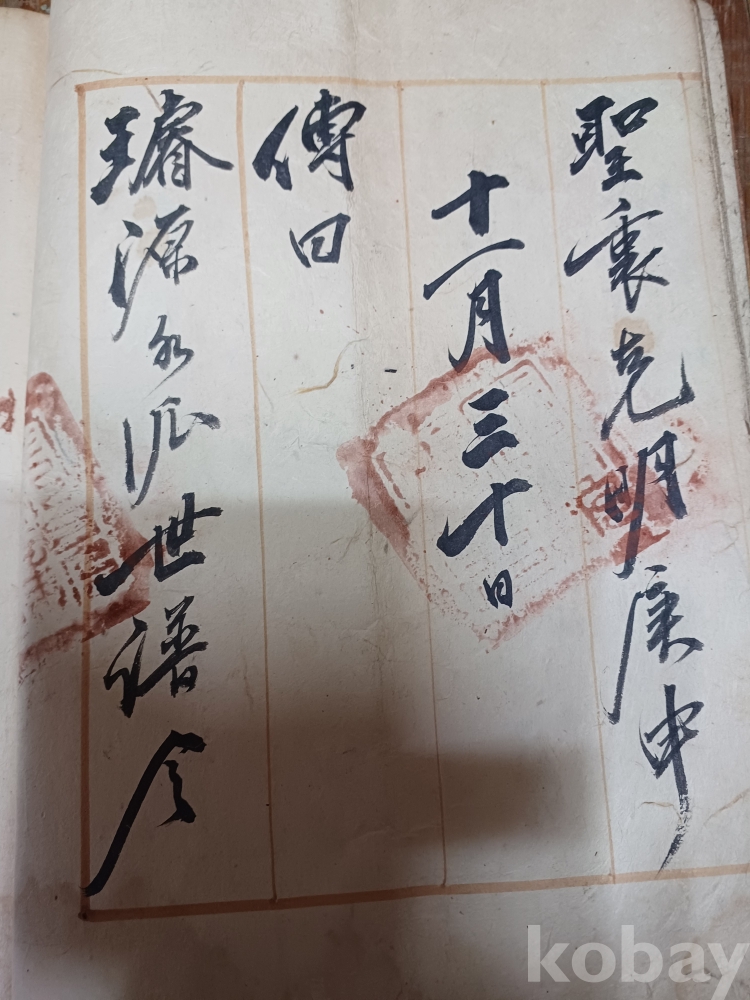 聖衷克明庚申
十一月三十日
傳曰
璿源永派世譜令
kobay